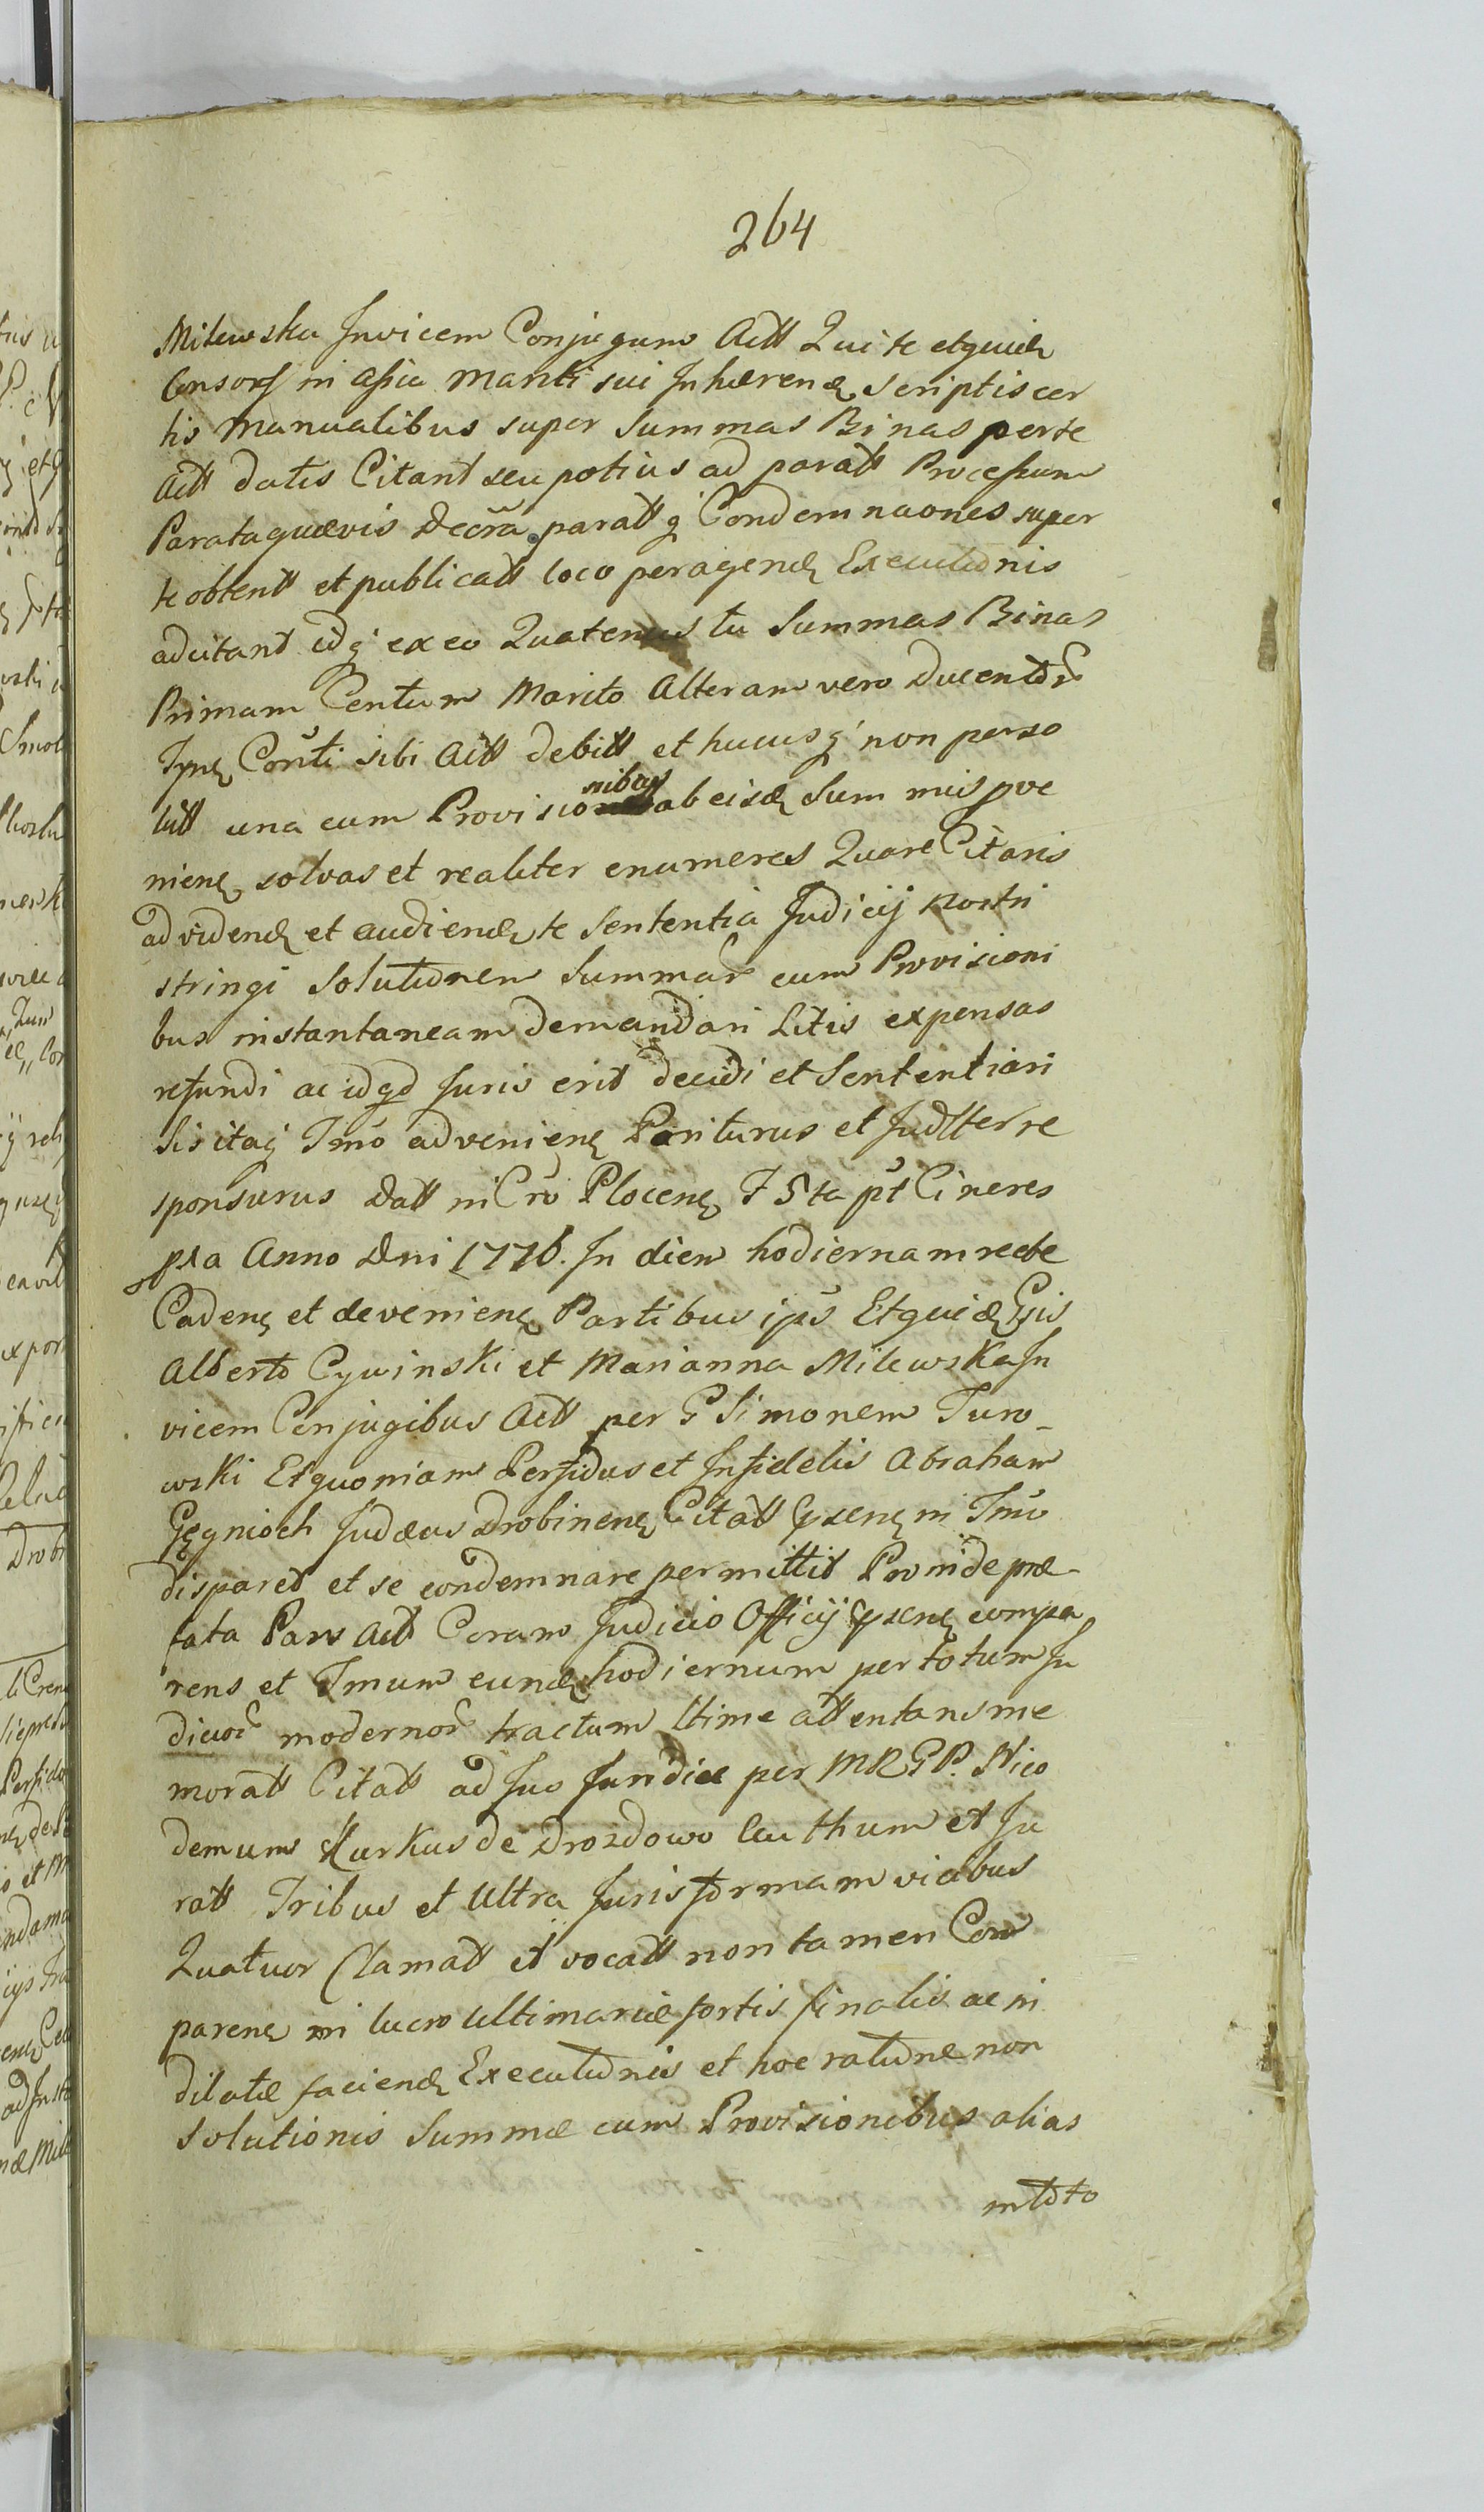 264
Milewska Invicem Conjugum Actt Qui te etquidē
Consors in assia Mariti sui Inhærenꝫ Scriptis cer
tis Manualibus super Summas Binas per te
Actt datis Citant seu potius ad paratt Processum
Parataquævis Decr̃a paratt q Condemnaones super
te obtentt et publicatt loco peragenđ Executionis
adcitant idq ex eo Quatenus tu Summas Binas
Primam Centum Marito Alteram vero Ducentor
Tynꝫ Cons̃ti sibi Actt debitt et hucusq non perso
lutt una cum Provisionibus ab eisđ Summis prove
nienꝫ solvas et realiter enumeres Quare Citaris
ad videnđ et audienđ te Sententia Judicij Nostri
stringi Solutionem Summar̃ cum Provisioni
bus instantaneam demandari Litis expensas
refundi ac idqd Juris erit decidi et Sententiari
Sis itaq Tm̃o advenienꝫ Pariturus et Judtterre
sponsurus Datt in Cr̃o Plocenꝫ F 5ta pt Cineres
pxa Anno Dni 1776. In diem hodiernam recte
Cadenꝫ et devenienꝫ Partibus ip̃s Etquidꝫ Gsis
Alberto Cywinski et Marianna Milewska In
vicem Conjugibus Actt per G Simonem Turo-
wski Etquoniam Perfidus et Infidelis Abraham
Gęgnioch Judæus Drobinenꝫ Citatt Gxenꝫ in Tm̃o
disparet et se condemnare permittit Proinde præ-
fata Pars Act Coram Judicio Officij Gxenꝫ compa
rens et Tmum eunđ hodiernum per totum Ju
dicior̃ modernor̃ tractum ltime attentans me
moratt Citatt ad Jus Juridice per MRGP. Nico
demum Kurkus de Drozdowo Authum et Ju
ratt Tribus et Ultra Juris formam vicibus
Quatuor Clamatt et vocatt non tamen Com
parenꝫ in lucro Ultimariæ sortis finalis ac in
dilatæ facienđ Executionis et hoc ratione non
Solutionis Summæ cum Provisionibus alias
intõto